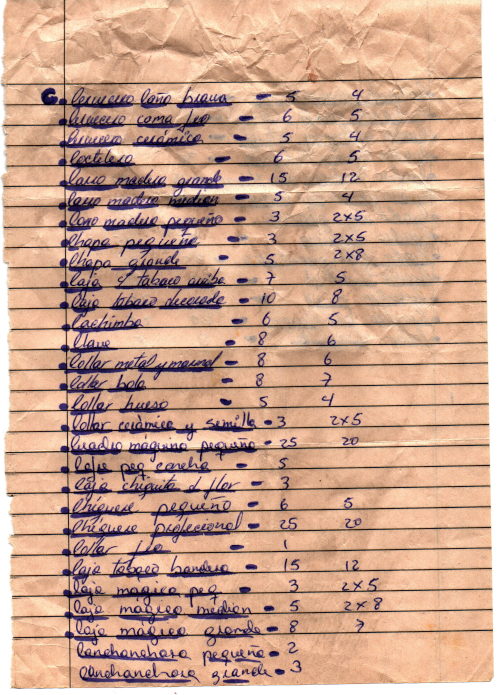 C. Cenicero Caña brava - 5 4
Cenicero coma feo - 6 5
Cenicero cerámica - 5 4
Coctelera - 6 5
Carro madera grande - 15 12
Carro madera median - 5 4
Carro madera pequeño - 3 2x5
Chapa pequeña - 3 2x5
Chapa grande - 5 2x8
Caja d tabaco - 7 5
Caja tabaco decorada - 10 8
Cachimba - 6 5
Clave - 8 6
Collar metal y - 8 6
Collar bola - 8 7
Collar hueso - 5 4
Collar cerámica y semilla - 3 2x5
Cuadro máquina pequeño - 25 20
Caja peq concha - 5
Caja chiquita d flor - 3
Chéquere pequeño - 6 5
Chéquere profesional - 25 20
Collar feo - 1
Caja tabaco bandera - 15 12
Caja mágica peq - 3 2x5
Caja mágica median - 5 2x8
Caja mágica grande - 8 7
Canchanchara pequeña - 2
Canchanchara grande - 3